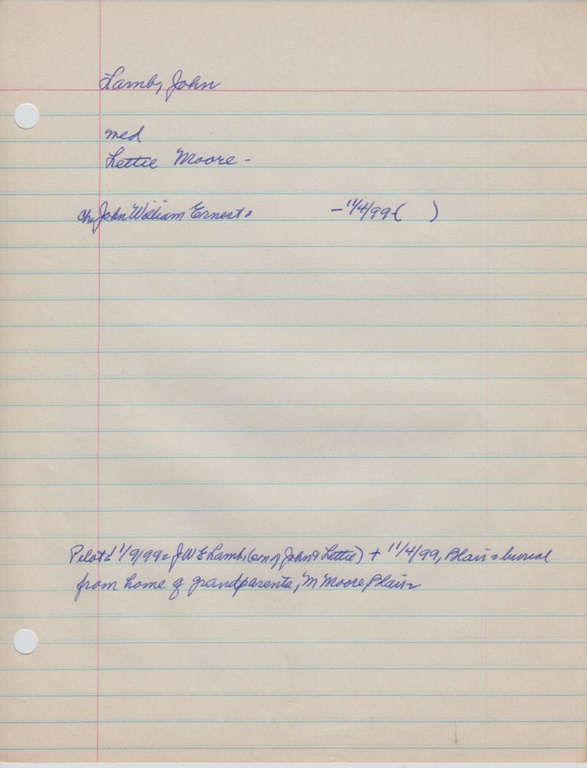 Lamb, John
med
Lettie Moore -
ch, John William Ernest - 11/4/99 ( )
Pilot 11/9/99 J W E Lamb, (son of John & Lettie) + 11/4/99, Blair burial
from home of grandparents, M Moore, Blair